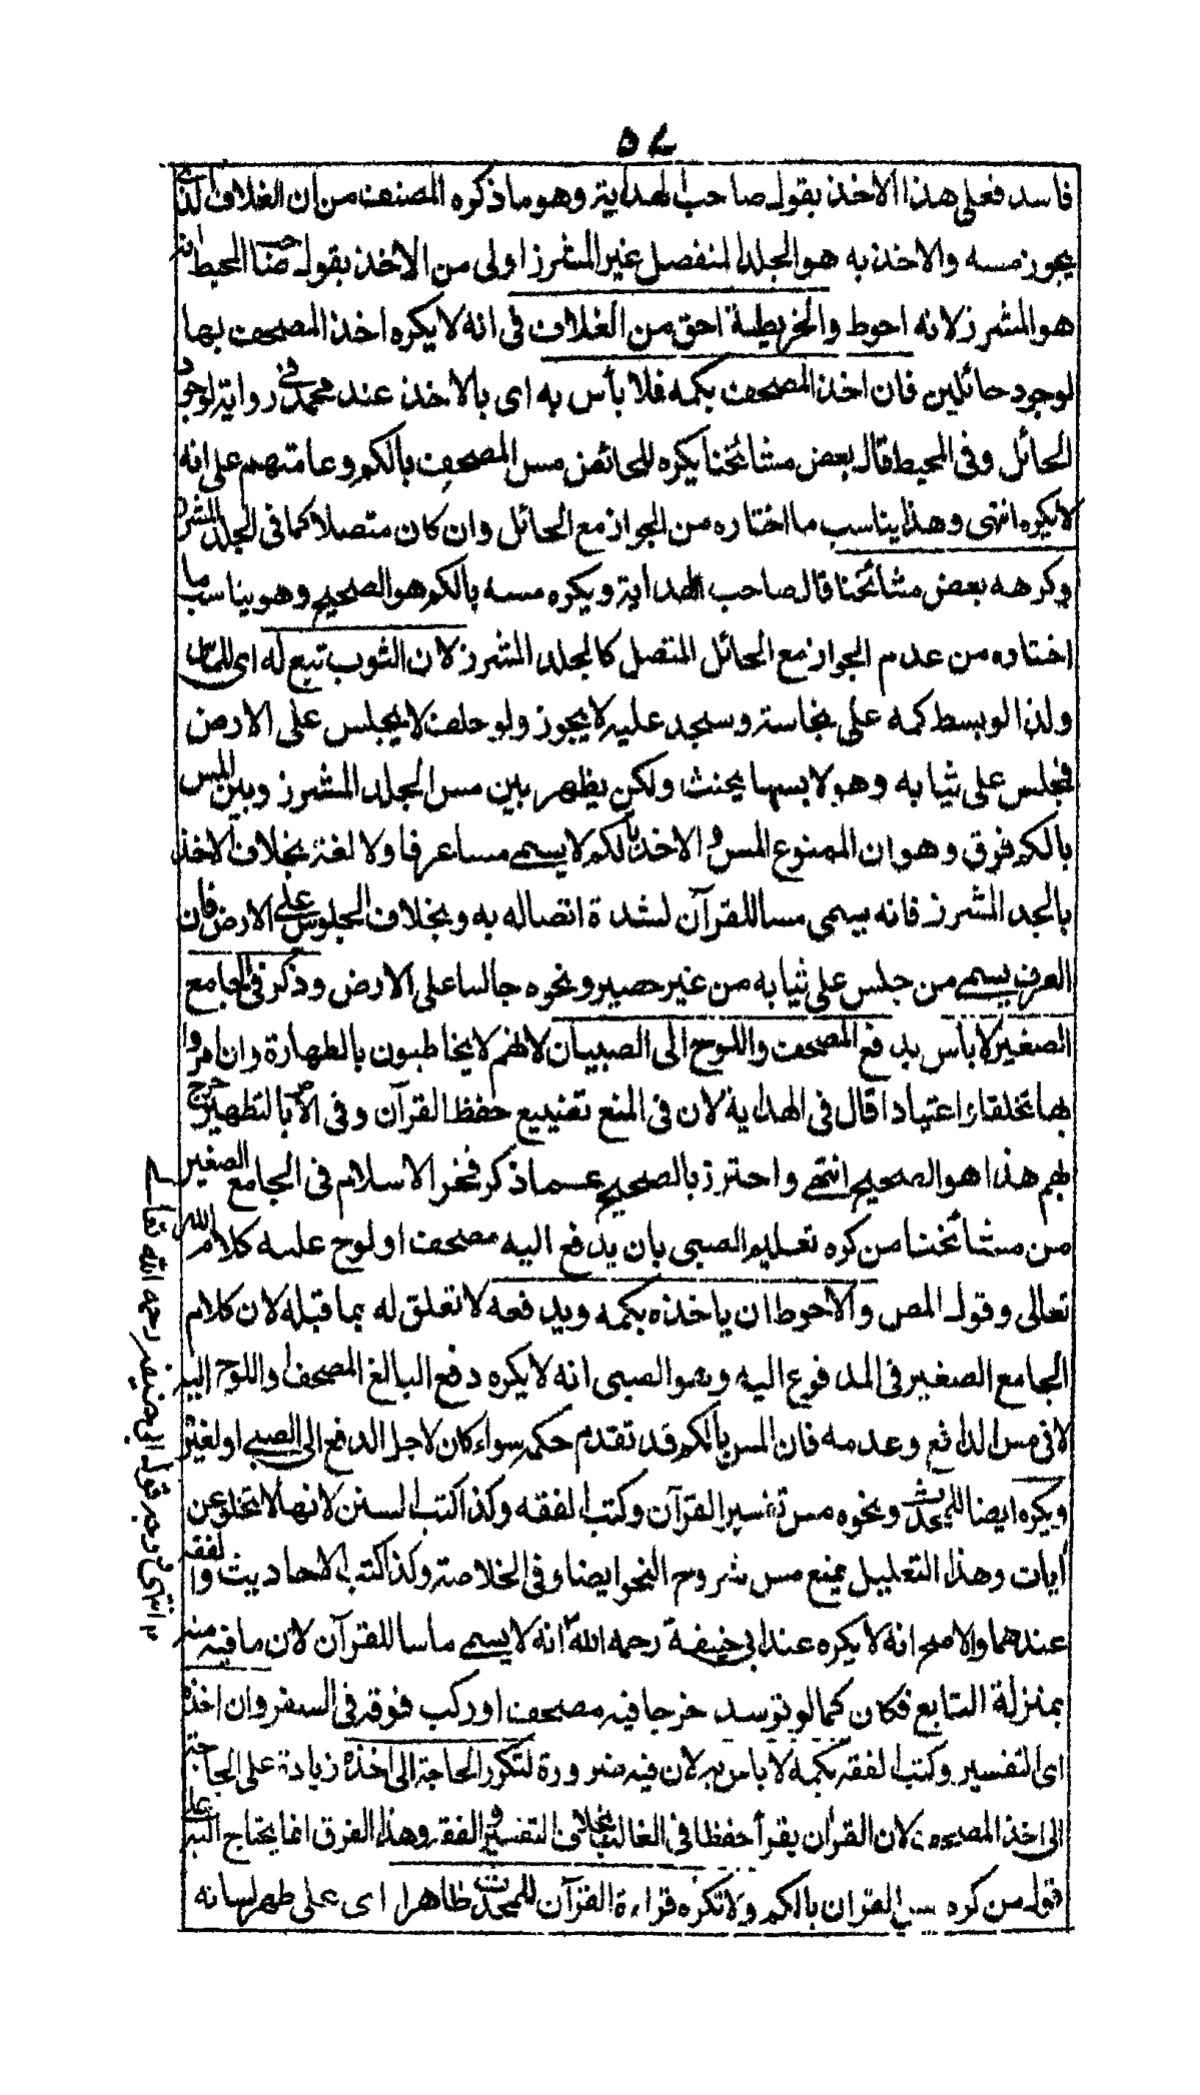 ٥٧
فاسد فعلى هذا الاخذ بقول صاحب الهداية وهو ما ذكره المصنف من ان الغلاف الذى
يجوز مسه والاخذ به هو الجلد المنفصل غير المشرز اولى من الاخذ بقول صاحب المحيط انه
هو المشرز لانه احوط والخريطة احق من الغلاف فى انه لا يكره اخذ المصحف بها
لوجود حائلين فان اخذ المصحف بكمه فلا بأس به اى بالاخذ عند محمد فى رواية لوجود
الحائل وفى المحيط قال بعض مشائخنا يكره للحائض مس المصحف بالكم وعامتهم على انه
لا يكره انتهى وهذا يناسب ما اختاره من الجواز مع الحائل وان كان متصلا كما فى الجلد المشرز
وكرهه بعض مشائخنا قال صاحب الهداية ويكره مسه بالكم هو الصحيح وهو يناسب ما
اختاره من عدم الجواز مع الحائل المتصل كالجلد المشرز لان الثوب تبع له اى للماس
ولذا لو بسط كمه على نجاسة وسجد عليه لا يجوز ولو حلف لا يجلس على الارض
فجلس على ثيابه وهو لابسها يحنث ولكن يظهر بين مس الجلد المشرز وبين المس
بالكم فرق وهو ان الممنوع المس والاخذ بالكم لا يسمى مسا عرفا ولا لغة بخلاف الاخذ
بالجد المشرز فانه يسمى مسا للقرآن لشدة اتصاله به وبخلاف الجلوس على الارض فان
العرف يسمى من جلس على ثيابه من غير حصير ونحوه جالسا على الارض وذكر فى الجامع
الصغير لا بأس بدفع المصحف واللوح الى الصبيان لانهم لا يخاطبون بالطهارة وان امروا
بها تخلقا واعتيادا قال فى الهداية لان فى المنع تضييع حفظ القرآن وفى الامر بالتطهير حرج
بهم هذا هو الصحيح انتهى واحترز بالصحيح عما ذكر فخر الاسلام فى الجامع الصغير
من مشائخنا من كره تعليم الصبى بان يدفع اليه مصحف او لوح عليه كلام الله
تعالى وقول المص والاحوط ان ياخذه بكمه ويدفعه لا تعلق له بما قبله لان كلام
الجامع الصغير فى المدفوع اليه وهو الصبى انه لا يكره دفع البالغ المصحف واللوح اليه
لا فى مس الدافع وعدمه فان المس بالكم قد تقدم حكمه سواء كان لاجل الدفع الى الصبى او لغيره
ويكره ايضا للمحدث ونحوه مس تفسير القرآن وكتب الفقه وكذا كتب السنن لانها لا تخلو عن
أيات وهذا التعليل يمنع مس شروح النحو ايضا وفى الخلاصة وكذا كتب الاحاديث والفقه
عندهما والاصح انه لا يكره عند ابى حنيفة رحمه الله انه لا يسمى ماسا للقرآن لان ما فيه منه
بمنزلة التابع فكان كما لو توسد خرجا فيه مصحف او ركب فوقه فى السفر وان اخذه
اى التفسير وكتب الفقه بكمه لا باس به لان فيه ضرورة لتكرر الحاجة الى اخذه زيادة على الحاجة
الى اخذ المصحف لان القرأن يقرأ حفظا فى الغالب بخلاف التفسير والفقه وهذا الفرق انما يحتاج اليه على
قول من كره القرأن بالكم ولا تكره قراءة القرآن للمحدث ظاهرا اى على ظهر لسانه
وجه قول ابى حنيفة رحمه الله تعالى